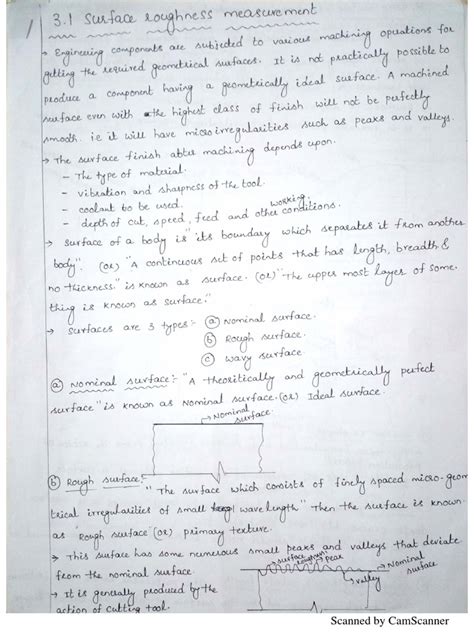 3.1 Surface roughness measurement
→ Engineering components are subjected to various machining operations for
getting the required geometrical surfaces. It is not practically possible to
produce a component having a geometrically ideal surface. A machined
surface even with the highest class of finish will not be perfectly
smooth. i.e it will have micro irregularities such as peaks and valleys.
→ The surface finish after machining depends upon.
- The type of material.
- vibration and sharpness of the tool.
- coolant to be used.
- depth of cut, speed, feed and other working conditions.
→ Surface of a body is "its boundary which separates it from another
body". (or) "A continuous set of points that has length, breadth &
no thickness" is known as surface. (or) "The upper most layer of some.
thing is known as surface."
→ Surfaces are 3 types:- (a) Nominal surface.
(b) Rough surface.
(c) Wavy surface.
(a) Nominal surface:- "A theoritically and geometrically perfect
surface" is known as Nominal surface. (or) Ideal surface.
→Nominal
surface.
(b) Rough surface:-
"The surface which consists of finely spaced micro-geom
trical irregularities of small wave length" Then the surface is known
as 'Rough surface' (or) primary texture.
→ This surface has some numerous small peaks and valleys that deviate
from the nominal surface.
surface roughness
peak
Nominal
surface
valley
→ It is generally produced by the
action of cutting tool.
Scanned by CamScanner